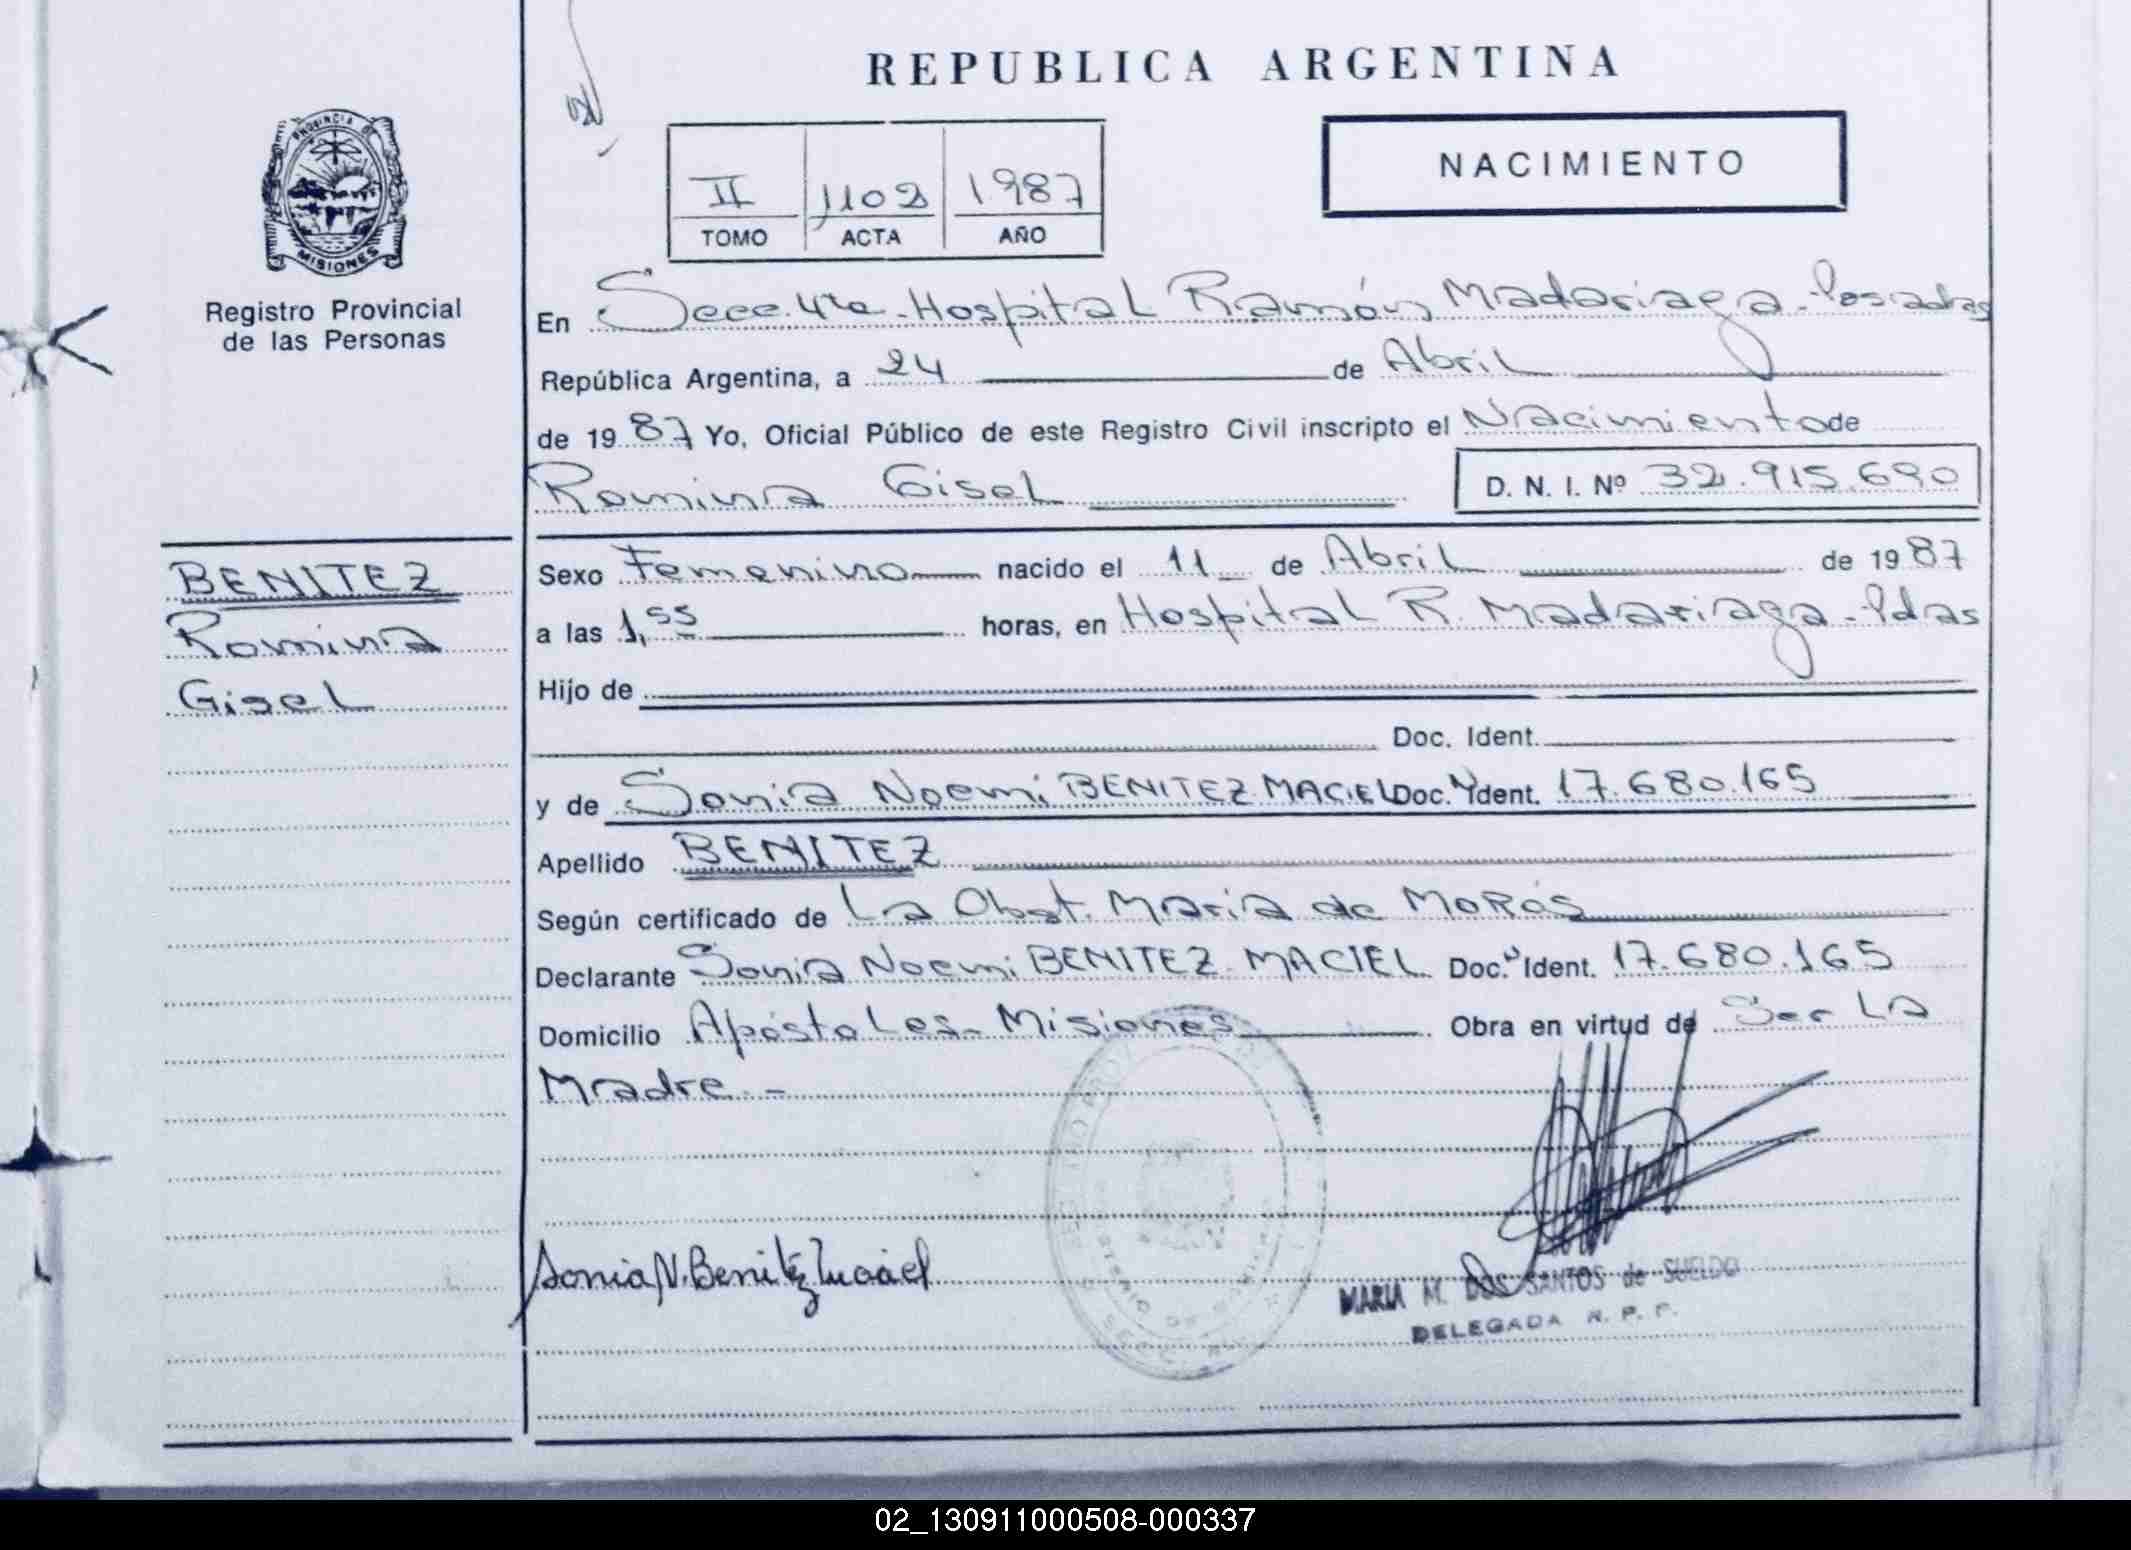 REPUBLICA ARGENTINA
PROVINCIA DE
MISIONES
Registro Provincial
de las Personas
NACIMIENTO
II 1102 1987
TOMO ACTA AÑO
En Secc. 4ta - Hospital Ramón Madariaga - Posadas
República Argentina, a 24 de Abril
de 1987 Yo, Oficial Público de este Registro Civil inscripto el Nacimiento de
Romina Gisel D. N. I. Nº 32.915.690
BENITEZ
Romina
Gisel
Sexo Femenino nacido el 11 de Abril de 1987
a las 1,55 horas, en Hospital R. Madariaga - Pdas
Hijo de
Doc. Ident.
y de Sonia Noemi BENITEZ MACIEL Doc. Ident. 17.680.165
Apellido BENITEZ
Según certificado de La Obst. Maria de MoRás
Declarante Sonia Noemi BENITEZ MACIEL Doc. Ident. 17.680.165
Domicilio Apóstoles - Misiones Obra en virtud de Ser La
Madre. -
Sonia N. Benitez Maciel
MARIA M. DOS SANTOS de SUELDO
DELEGADA R. P. P.
02_130911000508-000337